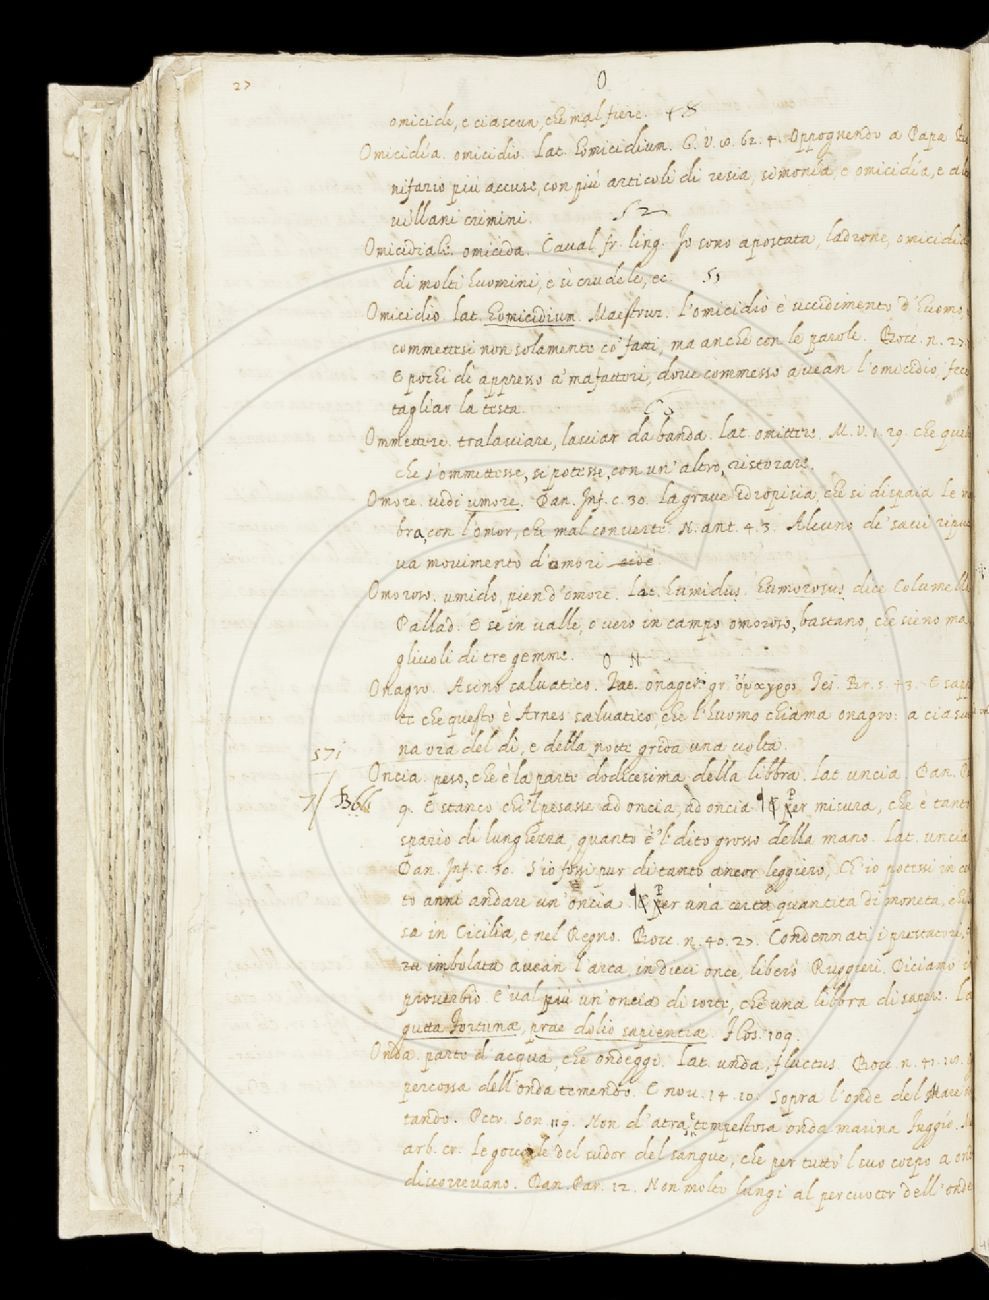 27
O
omicide, e ciascun, che mal fiere. 48
Omicidía. omicidio. Lat. homicidium. G. V. 10. 62. 4. Oppognendo a Papa
nifazio più accuse, con più articoli di resia, simonía, e omicidía, e al
villani crimini.
52
Omicidiale. omicida. Caval. fr. ling. Io sono apostata, ladrone, omicidi
di molti huomini, e sì crudele, ec. 51
Omicidio lat. homicidium. Maestruz. L'omicidio è uccidimento d'huomo,
commettesi non solamente co' fatti, ma anche con le parole. Bocc. n. 27
E pochi dì appresso a' mafattori, dove commesso avean l'omicidio, fece
tagliar la testa.
Ommettere. tralasciare, lasciar da banda. Lat. omittere. M. V. 1. 29. che quel
che s'ommettesse, si potesse, con un'altro, ristorare.
Omore. vedi umore. Dan. Inf. c. 30. La grave idropisia, che si dispaia le m
bra, con l'omor, che mal converte. N. ant. 4. 3. Alcuno de' savi ripu
va movimento d'omori cioè
Omoroso. umido, pien d'omore. Lat. humidus. humorosus dice Columell
Pallad. E se in valle, o vero in campo omoroso, bastano, che sieno ma
gliuoli di tre gemme.
O N
Onagro. Asino salvatico. Lat. onager gr. ὄναγρος Tes. Br. 5. 43. E sap
te che questo è Arnes salvatico, che l'huomo chiama onagro: a ciascu
na ora del dì, e della notte grida una volta.
571
Oncia. peso, che è la parte dodicesima della libbra. Lat. uncia. Dan. P
7
9. E stanco chi 'l pesasse ad oncia, ad oncia ¶ Per misura, che è tanto
spazio di lunghezza, quanto è 'l dito grosso della mano. Lat. uncia
Dan. Inf. c. 30. S'io fossi pur di tanto ancor leggiero, Ch'io potessi in ce
to anni andare un'oncia. ¶ Per una certa quantità di moneta, ch
sa in Cicilia, e nel Regno. Bocc. n. 40. 27. Condennati i prestatori,
ra imbolata avean l'arca, in dieci once, liberò Ruggieri. Diciamo i
proverbio. E' val più un'oncia di sorte, che una libbra di sapere. La
gutta fortunæ, prae dolio sapientiæ. Flos. 109.
Onda. parte d'acqua, che ondeggi. Lat. unda, fluctus. Bocc. n. 41. 20.
percossa dell'onda temendo. E nov. 14. 10. Sopra l'onde del Mare
tando. Petr. Son. 119. Non d'atra, e tempestosa onda marina Fuggío.
arb. cr. Le gocciole del sudor del sangue, che per tutto 'l suo corpo a on
discorrevano. Dan. Par. 12. Non molto lungi al percuoter dell'onde